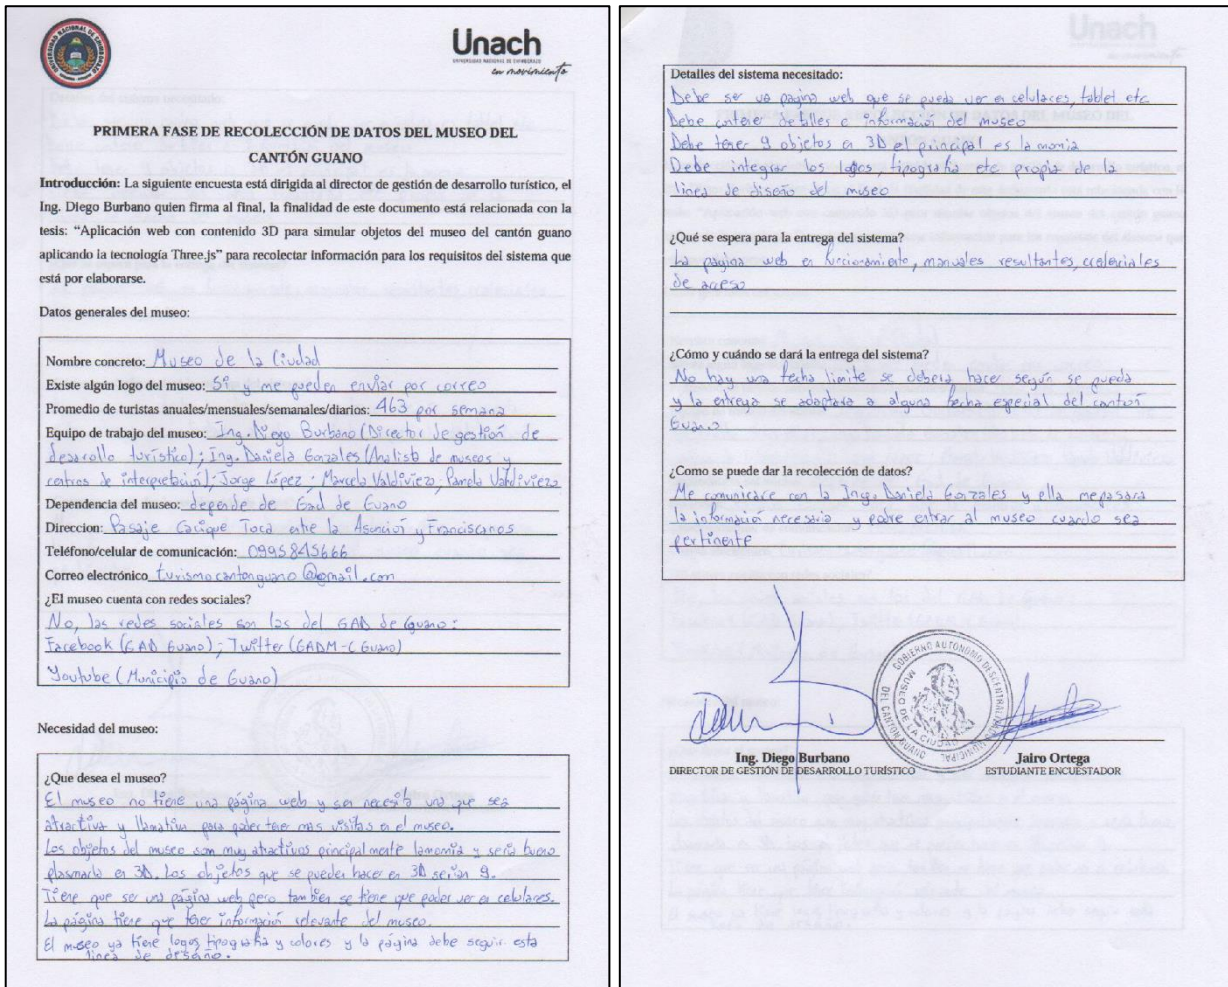 UNIVERSIDAD NACIONAL DE CHIMBORAZO
Unach
UNIVERSIDAD NACIONAL DE CHIMBORAZO
en movimiento
PRIMERA FASE DE RECOLECCIÓN DE DATOS DEL MUSEO DEL
CANTÓN GUANO
Introducción: La siguiente encuesta está dirigida al director de gestión de desarrollo turístico, el
Ing. Diego Burbano quien firma al final, la finalidad de este documento está relacionada con la
tesis: “Aplicación web con contenido 3D para simular objetos del museo del cantón guano
aplicando la tecnología Three.js” para recolectar información para los requisitos del sistema que
está por elaborarse.
Datos generales del museo:
Nombre concreto: Museo de la Ciudad
Existe algún logo del museo: Si y me pueden enviar por correo
Promedio de turistas anuales/mensuales/semanales/diarios: 463 por semana
Equipo de trabajo del museo: Ing. Diego Burbano (Director de gestión de
desarrollo turístico); Ing. Daniela Gonzales (Analista de museos y
centros de interpretación); Jorge López; Marcela Valdiviezo; Pamela Valdiviezo
Dependencia del museo: depende de Gad de Guano
Direccion: Pasaje Cacique Toca entre la Asunción y Franciscanos
Teléfono/celular de comunicación: 0995845666
Correo electrónico turismocantonguano@gmail.com
¿El museo cuenta con redes sociales?
No, las redes sociales son las del GAD de Guano:
Facebook (GAD Guano); Twitter (GADM-C Guano)
Youtube (Municipio de Guano)
Necesidad del museo:
¿Que desea el museo?
El museo no tiene una página web y se necesita una que sea
atractiva y llamativa para poder tener mas visitas en el museo.
Los objetos del museo son muy atractivos principalmente la momia y sería bueno
plasmarlo en 3D. Los objetos que se pueden hacer en 3D serían 9.
Tiene que ser una página web pero tambien se tiene que poder ver en celulares.
La página tiene que tener información relevante del museo.
El museo ya tiene logos, tipografia y colores y la página debe seguir esta
linea de diseño.
Detalles del sistema necesitado:
Debe ser una pagina web que se pueda ver en celulares, tablet etc
Debe contener detalles e información del museo
Debe tener 9 objetos en 3D el principal es la momia
Debe integrar los logos, tipografia etc propia de la
línea de diseño del museo
¿Qué se espera para la entrega del sistema?
La pagina web en funcionamiento, manuales resultantes, credenciales
de acceso
¿Cómo y cuándo se dará la entrega del sistema?
No hay una fecha limite se debera hacer según se pueda
y la entrega se adaptara a alguna fecha especial del cantón
Guano
¿Como se puede dar la recolección de datos?
Me comunicare con la Ing. Daniela Gonzales y ella me pasara
la información necesaria y podre entrar al museo cuando sea
pertinente
GOBIERNO AUTÓNOMO DESCENTRALIZADO MUNICIPAL DEL CANTÓN GUANO
MUSEO DE LA CIUDAD
Ing. Diego Burbano
DIRECTOR DE GESTIÓN DE DESARROLLO TURÍSTICO
Jairo Ortega
ESTUDIANTE ENCUESTADOR